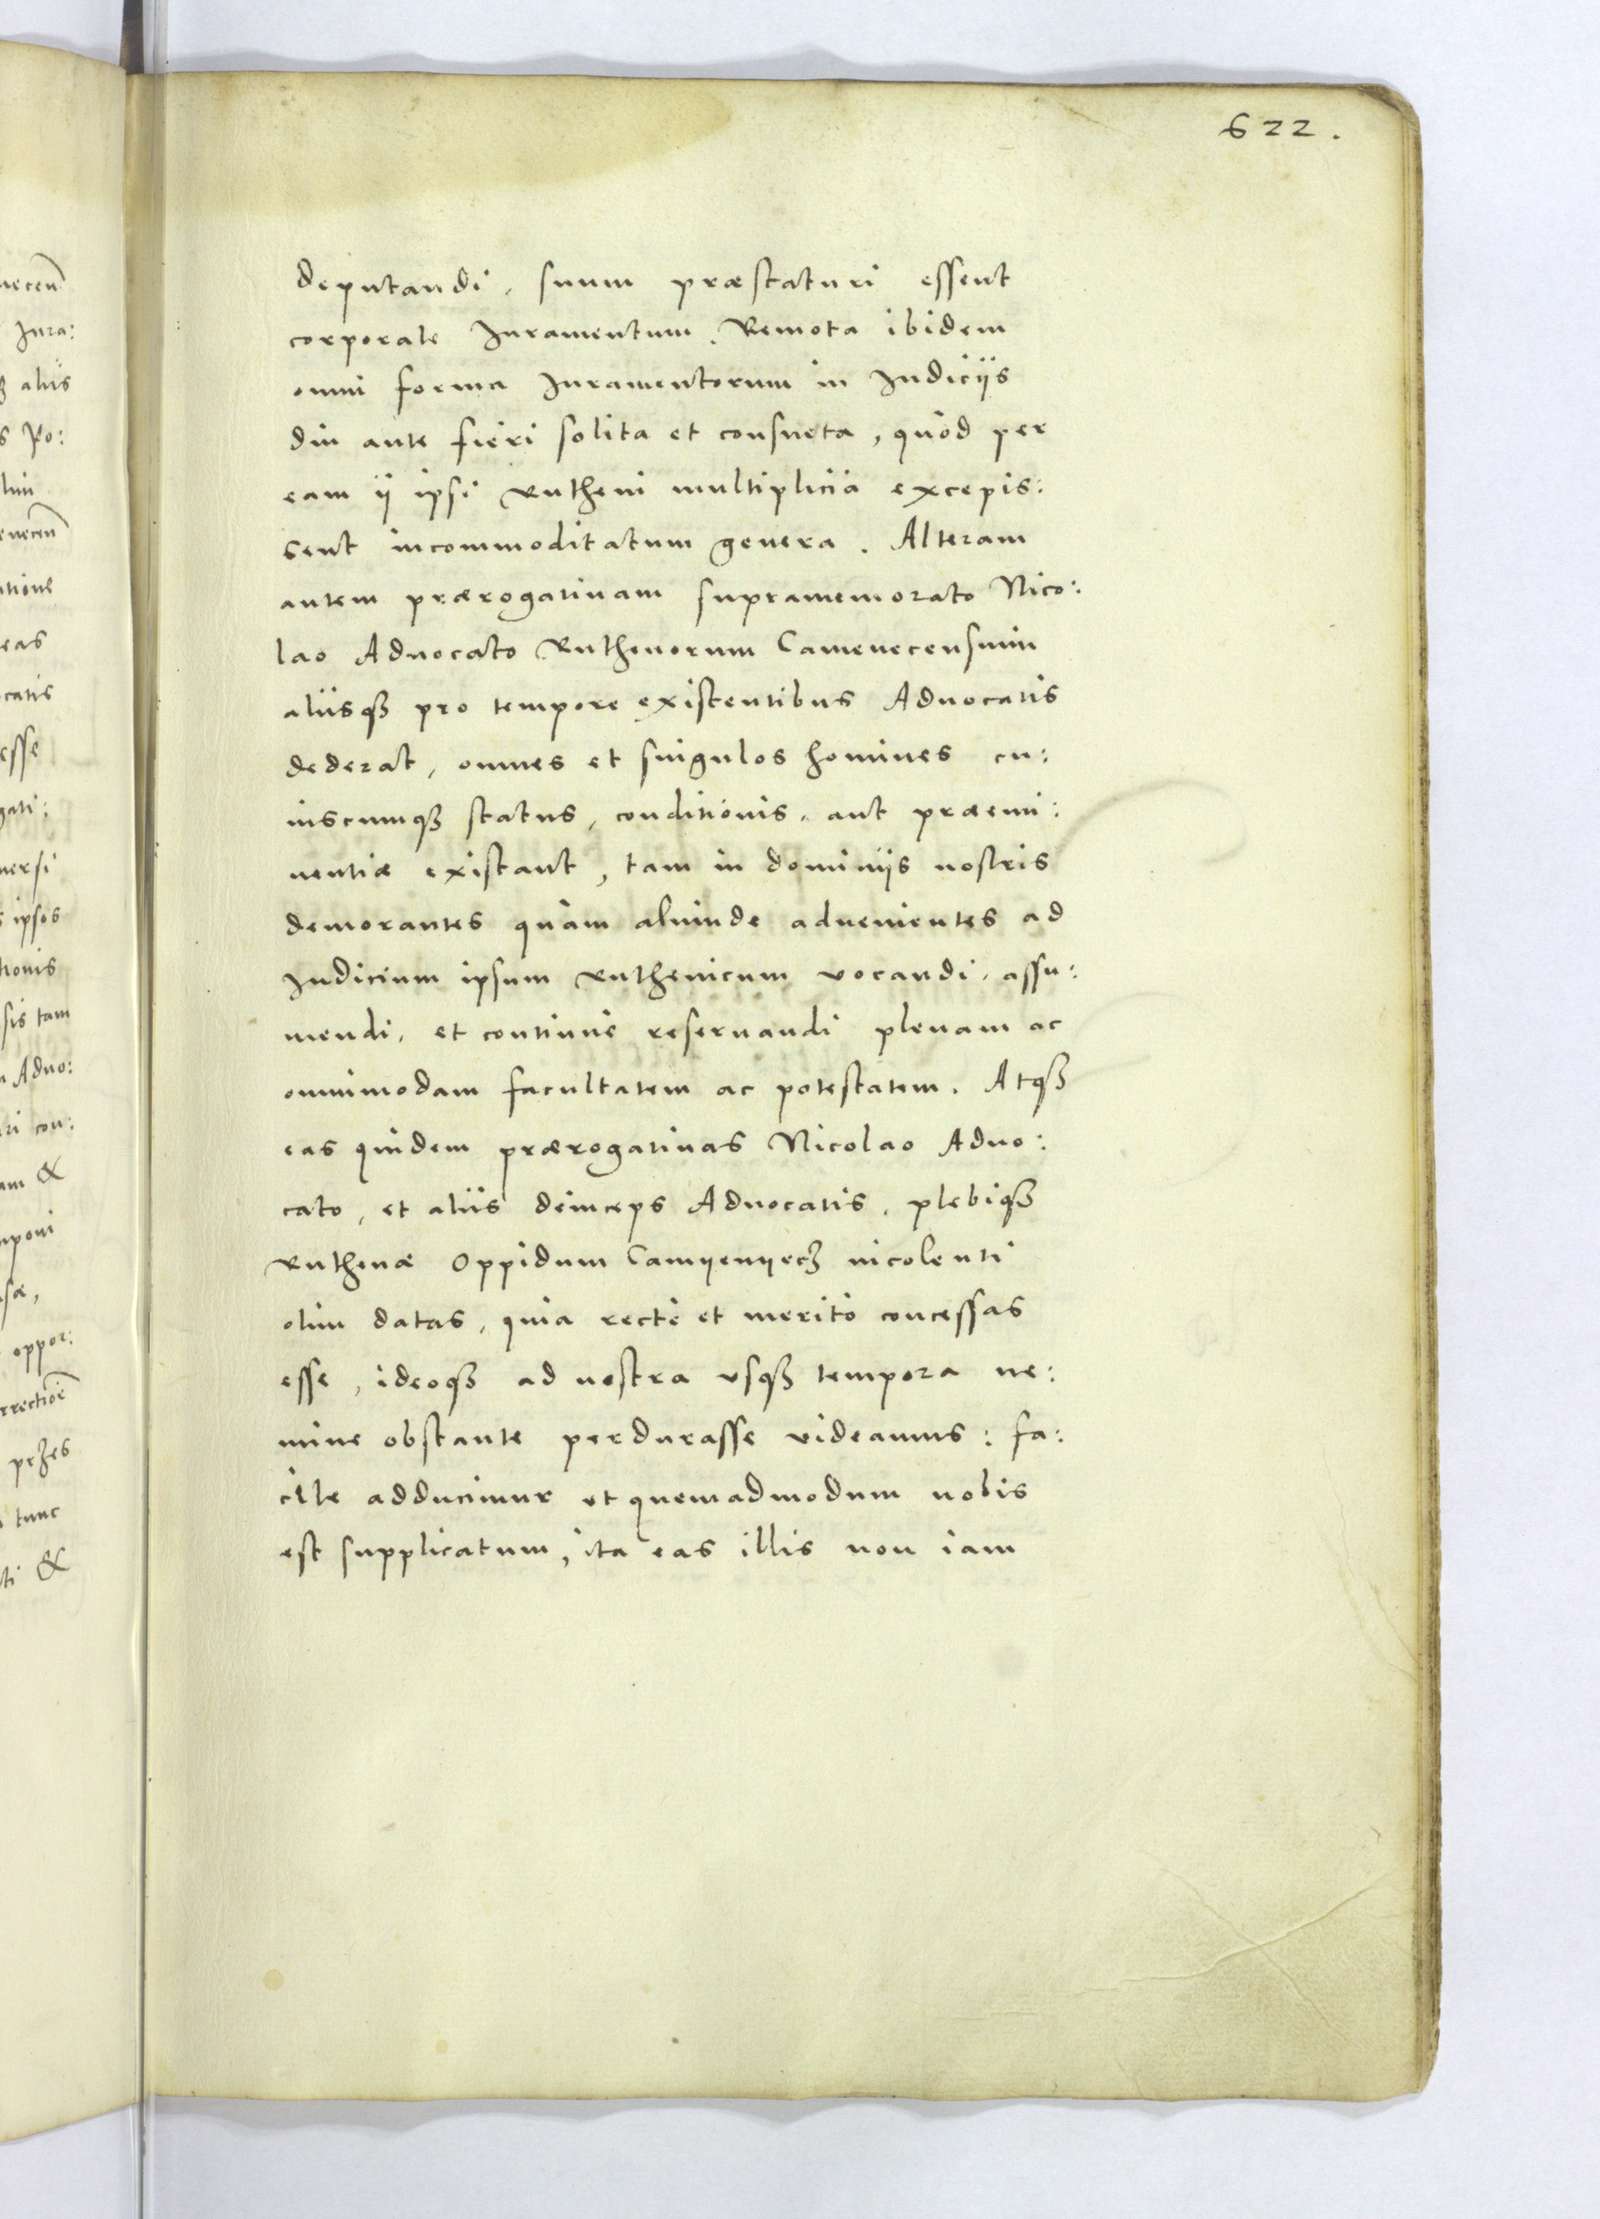 622.
deputandi, suum præstaturi essent
corporale Iuramentum. Remota ibidem
omni forma Iuramentorum in Iudiciis
diu ante fieri solita et consueta, quòd per
eam ii ipsi rutheni multiplicia excepis:
sent incommoditatum genera. Alteram
autem prærogatiuam supramemorato Nico:
lao Aduocato Ruthenorum Camenecensium
aliisqȝ pro tempore existentibus Aduocatis
dederat, omnes et singulos homines cu:
iuscumqȝ status, conditionis, aut præemi:
nentiæ existant, tam in dominiis nostris
demorantes quàm aliunde aduenientes ad
Iudicium ipsum ruthenicum vocandi, assu:
mendi, et continuè reseruandi plenam ac
omnimodam facultatem ac potestatem. Atqȝ
eas quidem prærogatiuas Nicolao Aduo:
cato, et aliis deinceps Aduocatis, plebiqȝ
Ruthenæ Oppidum Camyenyecz incolenti
olim datas, quia rectè et meritò concessas
esse, ideoqȝ ad nostra vsqȝ tempora ne:
mine obstante perdurasse videamus: fa:
cile adducimur ut quemadmodum nobis
est supplicatum, ita eas illis non iam
necen̄
Iura:
aliis
Po:
lim
enecen̄
eas
catis
esse
gati:
uersi
ipsos
tionis
tam
Aduo:
con:
&
oppor:
tunc
&